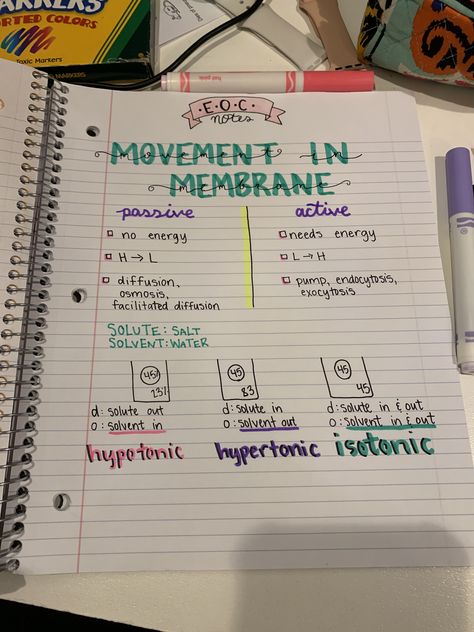 ARKERS
ORTED COLORS
oxic Markers
E.O.C.
notes
MOVEMENT IN
MEMBRANE
movement in
membrane
passive active
no energy needs energy
H → L L → H
diffusion, osmosis, facilitated diffusion pump, endocytosis, exocytosis
SOLUTE: SALT
SOLVENT: WATER
45% 45 45
23% 83 45
d: solute out d: solute in d: solute in & out
o: solvent in o: solvent out o: solvent in & out
hypotonic hypertonic isotonic